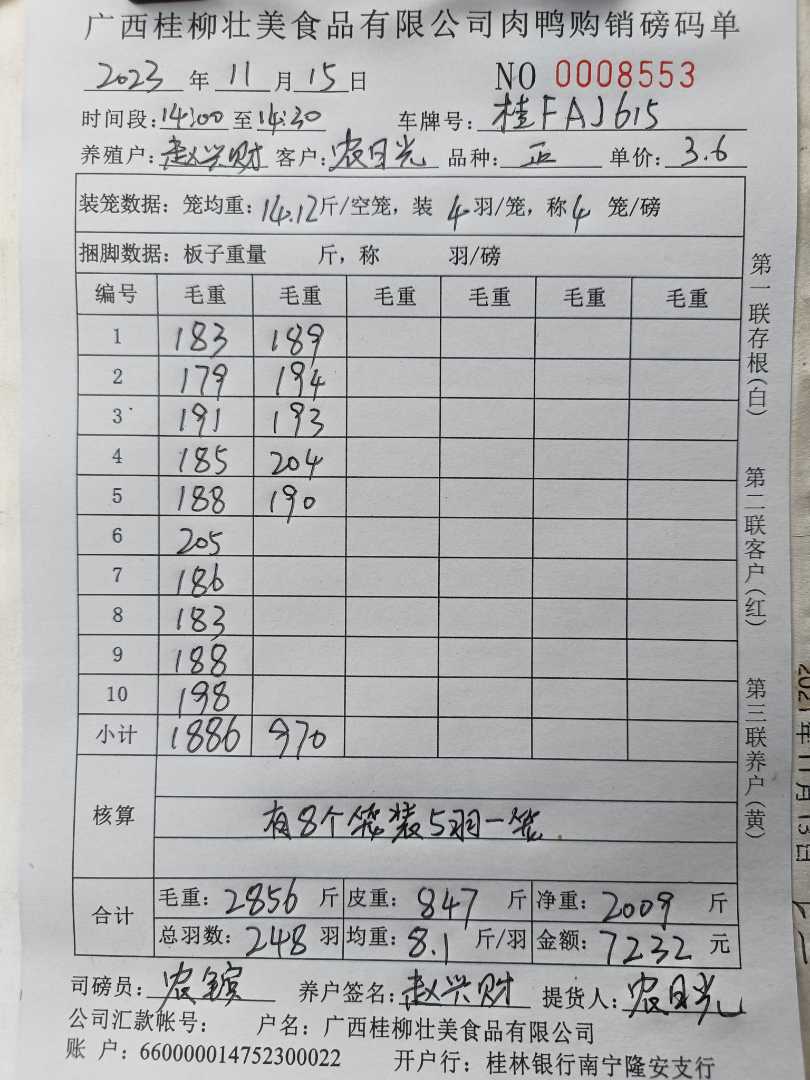 广西桂柳壮美食品有限公司肉鸭购销磅码单
2023 年 11 月 15 日 NO 0008553
时间段:14:00 至 14:30 车牌号: 桂FAJ615
养殖户: 赵兴财 客户: 农日光 品种: 正 单价: 3.6
装笼数据: 笼均重: 14.12 斤/空笼, 装 4 羽/笼, 称 4 笼/磅
捆脚数据: 板子重量 斤, 称 羽/磅
编号 毛重 毛重 毛重 毛重 毛重 毛重
1 183 189
2 179 194
3 191 193
4 185 204
5 188 190
6 205
7 186
8 183
9 188
10 198
小计 1886 970
核算 有8个笼装5羽一笼
合计 毛重: 2856 斤 皮重: 847 斤 净重: 2009 斤
总羽数: 248 羽 均重: 8.1 斤/羽 金额: 7232 元
司磅员: 农 养户签名: 赵兴财 提货人: 农日光
公司汇款帐号: 户名: 广西桂柳壮美食品有限公司
账 户: 660000014752300022 开户行: 桂林银行南宁隆安支行
第一联存根(白) 第二联客户(红) 第三联养户(黄)
2021年11月13日